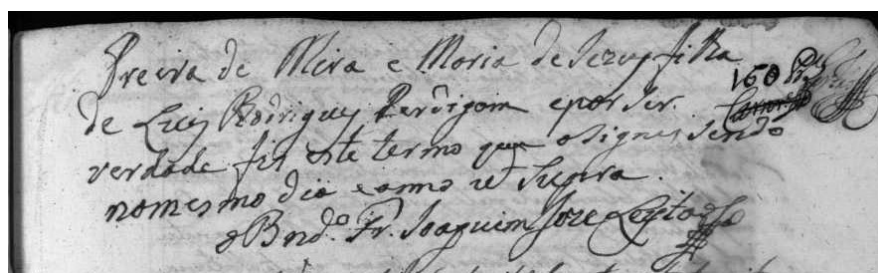 Preira de Mira e Maria de Jezus filha
de Luis Rodrigues Perdigam e por ser
verdade fis este termo que asignei sendo
no mesmo dia e anno ut supra.
o Bnd.o Fr. Joaquim Joze Leytão
160